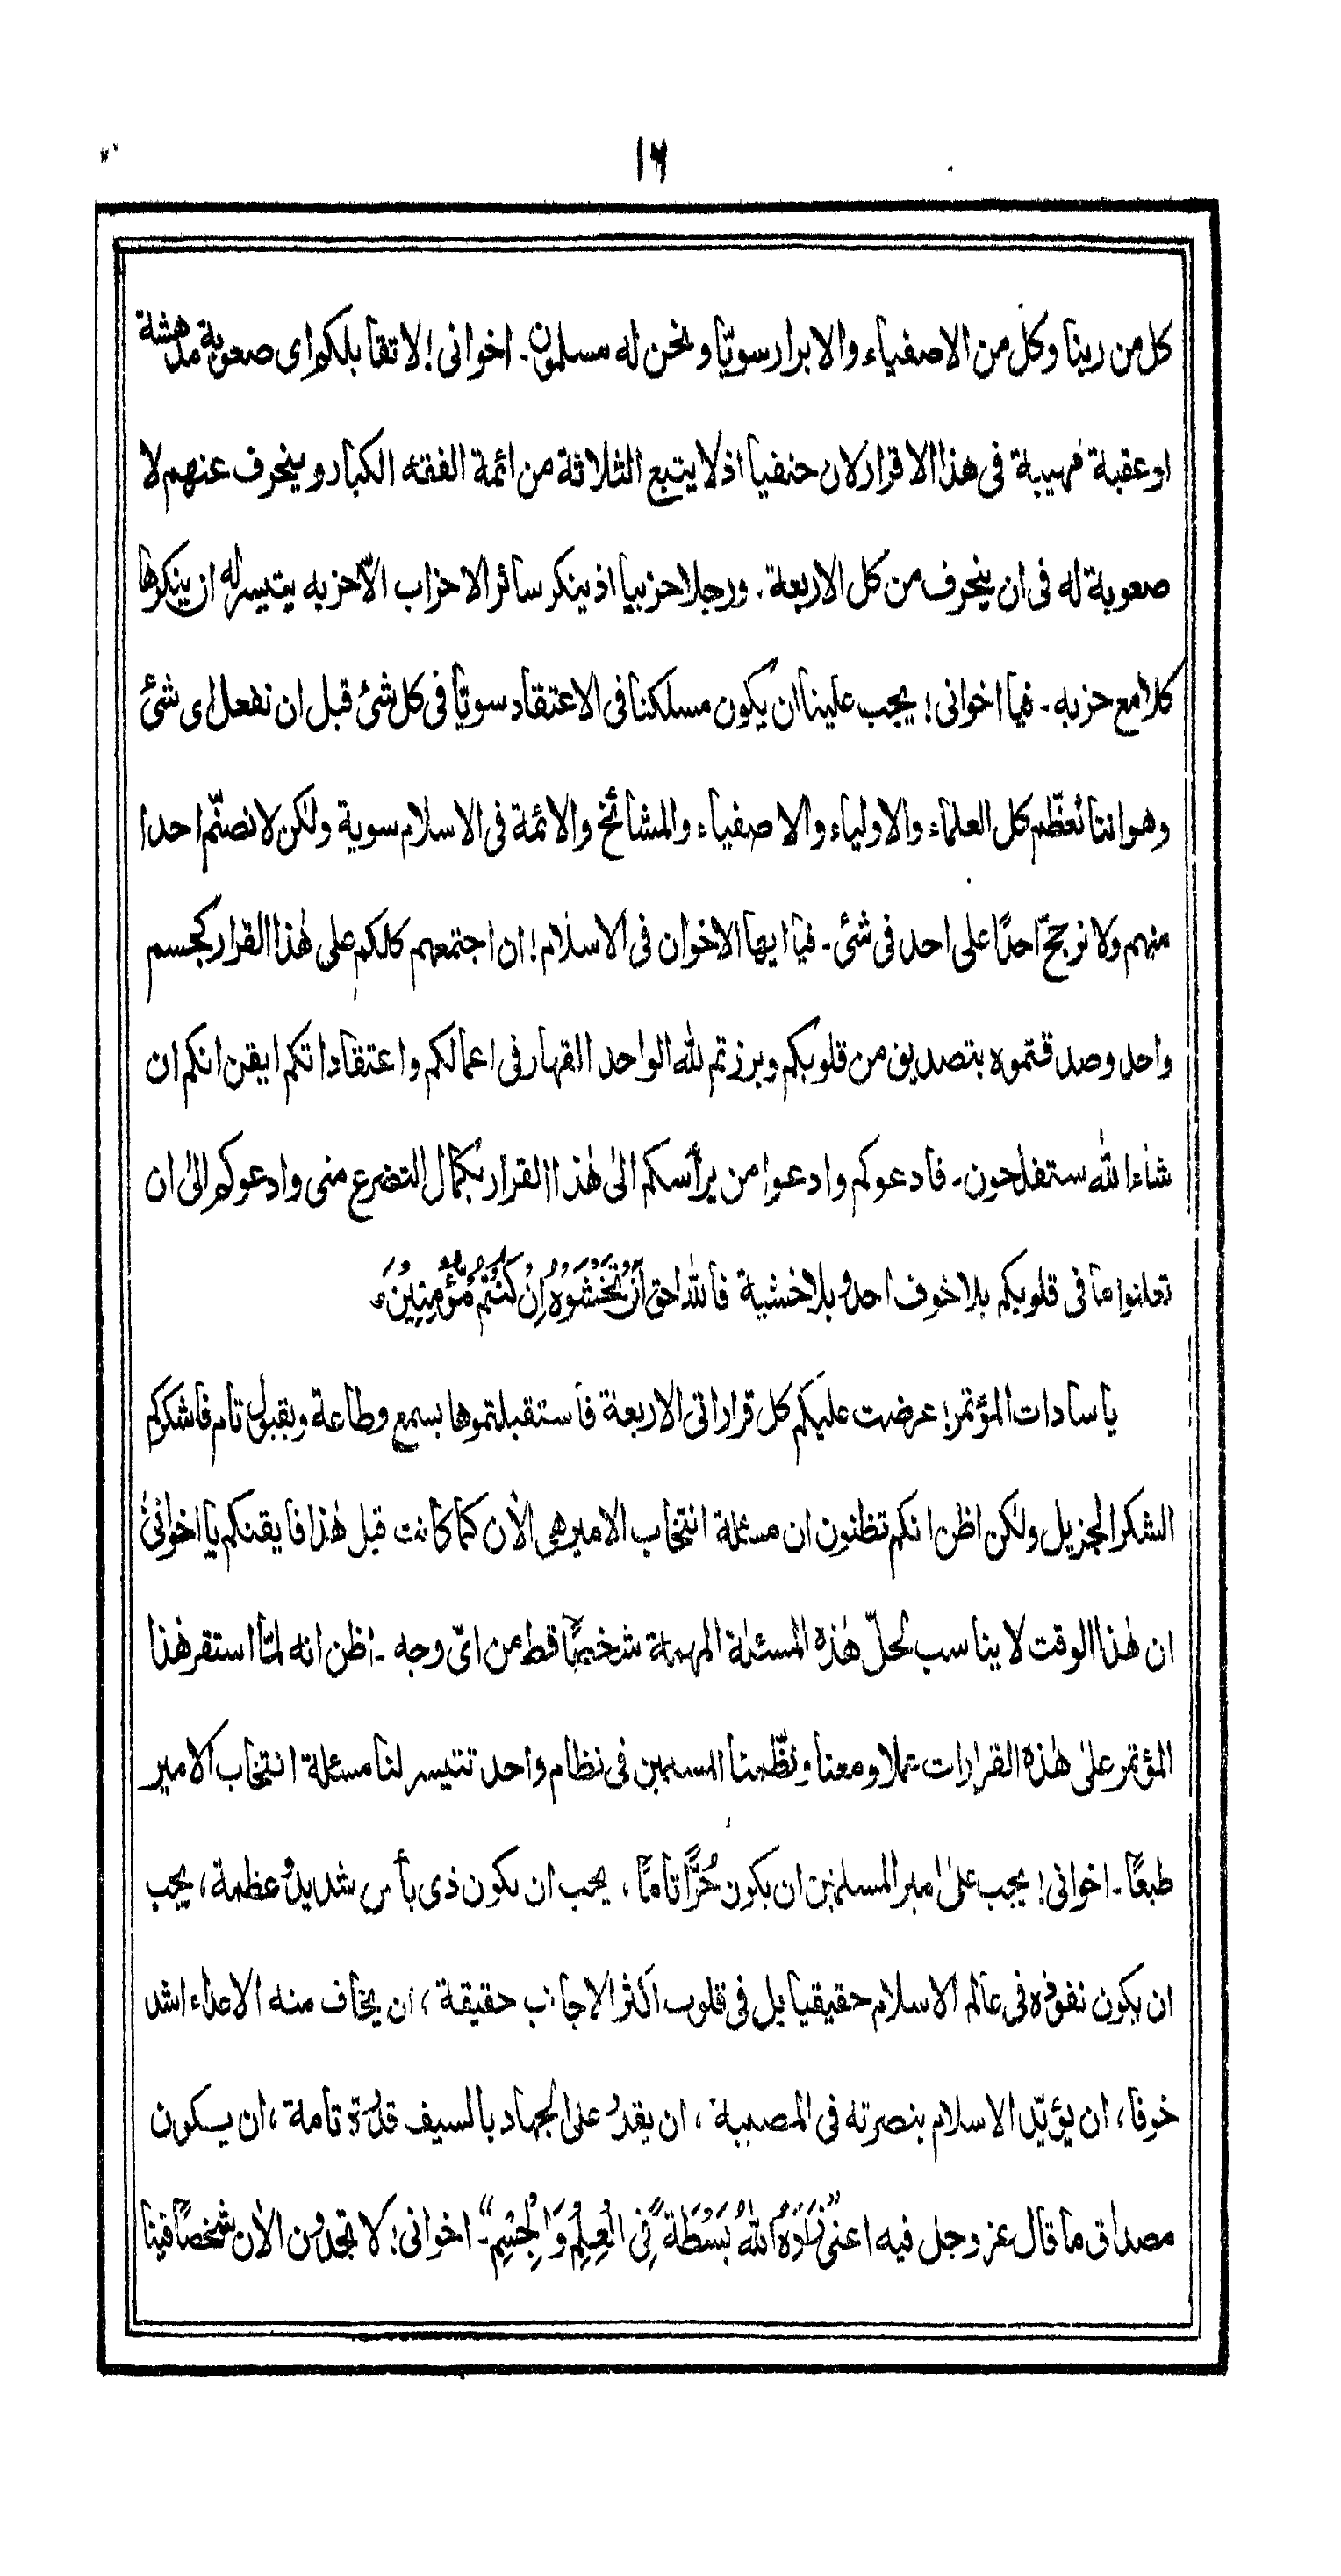 ۱۶
كل من ربنا وكل من الاصفياء والابرار سويّا ونحن له مسلمون۔ اخوانی! لا تقابلكم ای صعوبة مدهشة
او عقبة مهيبة فی هذا الاقرار لان حنفيا اذ لا يتبع الثلاثة من ائمة الفقه الكبار و ينحرف عنهم لا
صعوبة له فی ان ينحرف من كل الاربعة۔ ورجلا حزبيا اذ ينكر سائر الاحزاب الّا حزبه يتيسر له ان ينكرها
كلا مع حزبه۔ فيا اخوانی! يجب علينا ان يكون مسلكنا فی الاعتقاد سويّا فی كل شئ قبل ان نفعل ای شئ
وهو اننا نُعظّم كل العلماء والاولياء والاصفياء والمشائخ والائمة فی الاسلام سوية ولٰكن لا نصنّم احدا
منهم ولا نرجحّ احدًا علی احد فی شئ۔ فيا ايها الاخوان فی الاسلام! ان اجتمعهم كلكم علی هٰذا القرار كجسم
واحد وصدقتموه بتصديق من قلوبكم وبرزتم لله الواحد القهار فی اعمالكم واعتقاداتكم ايقن انكم ان
شاء الله ستفلحون۔ فادعوكم وادعوا من يرأسكم الیٰ هٰذا القرار بكمال التضرع منی وادعوكم الیٰ ان
تعلنوا ما فی قلوبكم بلا خوف احد وبلا خشية فالله احق اَنْ تَخْشَوْهُ اِنْ كُنْتُمْ مُّؤْمِنِيْنَ۔
يا سادات المؤتمر! عرضت عليكم كل قراراتی الاربعة فاستقبلتموها بسمع وطاعة وبقبول تام فاشكركم
الشكر الجزيل ولٰكن اظن انكم تظنون ان مسئلة انتخاب الامير هی الأن كما كانت قبل هٰذا فايقنكم يا اخوانی
ان هٰذا الوقت لا يناسب لحلّ هٰذه المسئلة المهمة شخصًا قط من ایّ وجه۔ اظن انه لمّا استقر هٰذا
المؤتمر علیٰ هٰذه القرارات عملا ومعنا ونظّمنا المسلمين فی نظام واحد تتيسر لنا مسئلة انتخاب الامير
طبعًا۔ اخوانی! يجب علیٰ امير المسلمين ان يكون حُرًّا تامًا، يجب ان يكون ذی بأس شديد وعظمة، يجب
ان يكون نفوذه فی عالم الاسلام حقيقيا بل فی قلوب اكثر الاجانب حقيقة، ان يخاف منه الاعداء اشد
خوفا، ان يؤيّد الاسلام بنصرته فی المصيبة، ان يقدر علی الجهاد بالسيف قدرة تامة، ان يكون
مصداق ما قال عز وجل فيه اعنی "زَادَهُ اللّٰهُ بَسْطَةً فِی الْعِلْمِ وَالْجِسْمِ"۔ اخوانی! لا تجدون الأن شخصًا فينا